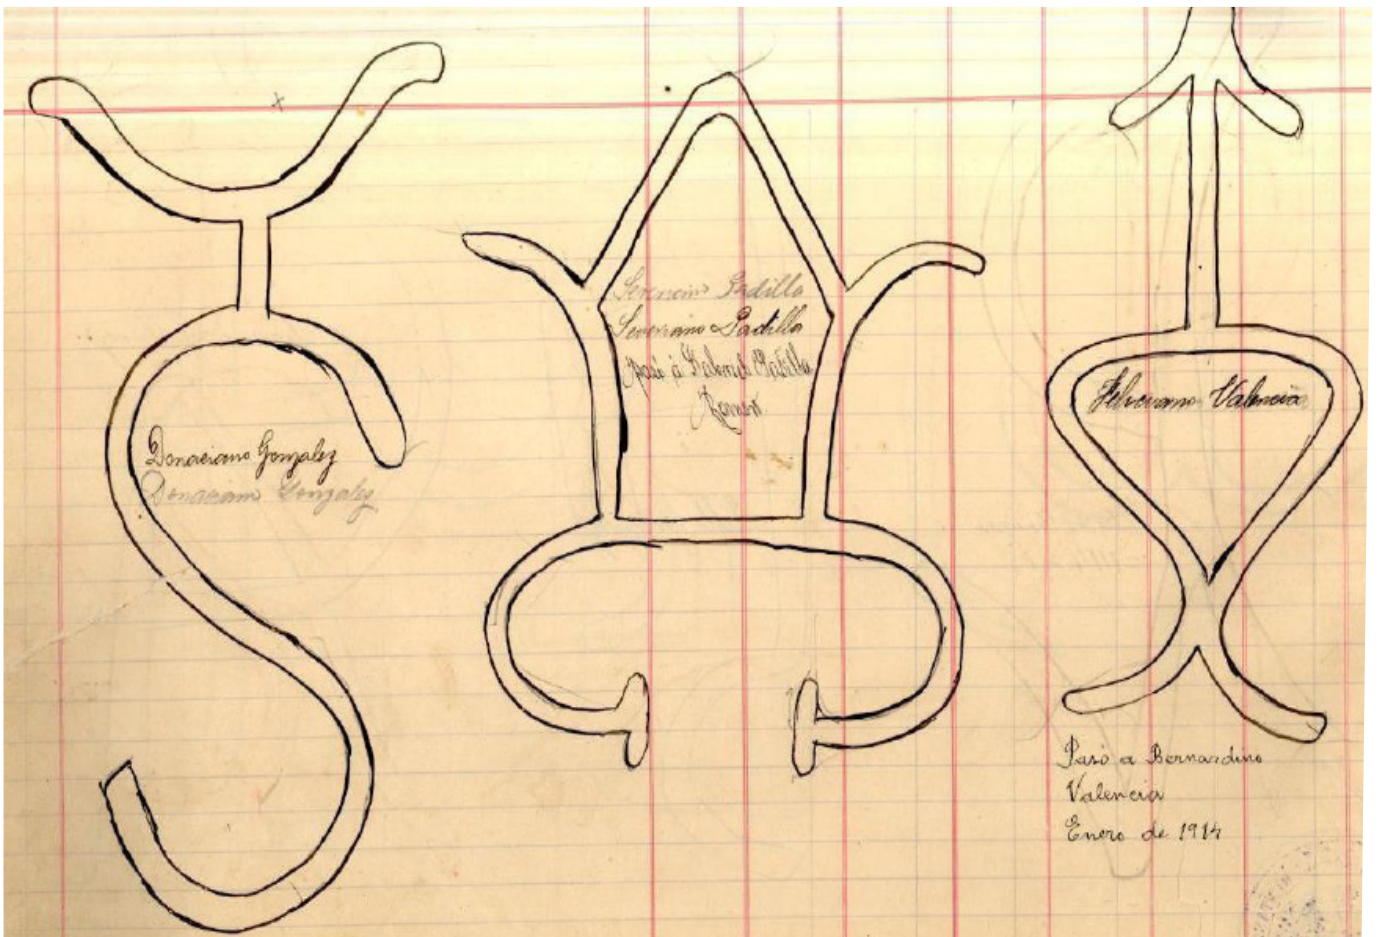 Donaciano Gonzalez
Donaciano Gonzalez
Severiano Padilla
Severiano Padilla
pasó á Gabriel Padilla
Valencia
Pasó a Bernardino
Valencia
Enero de 1914